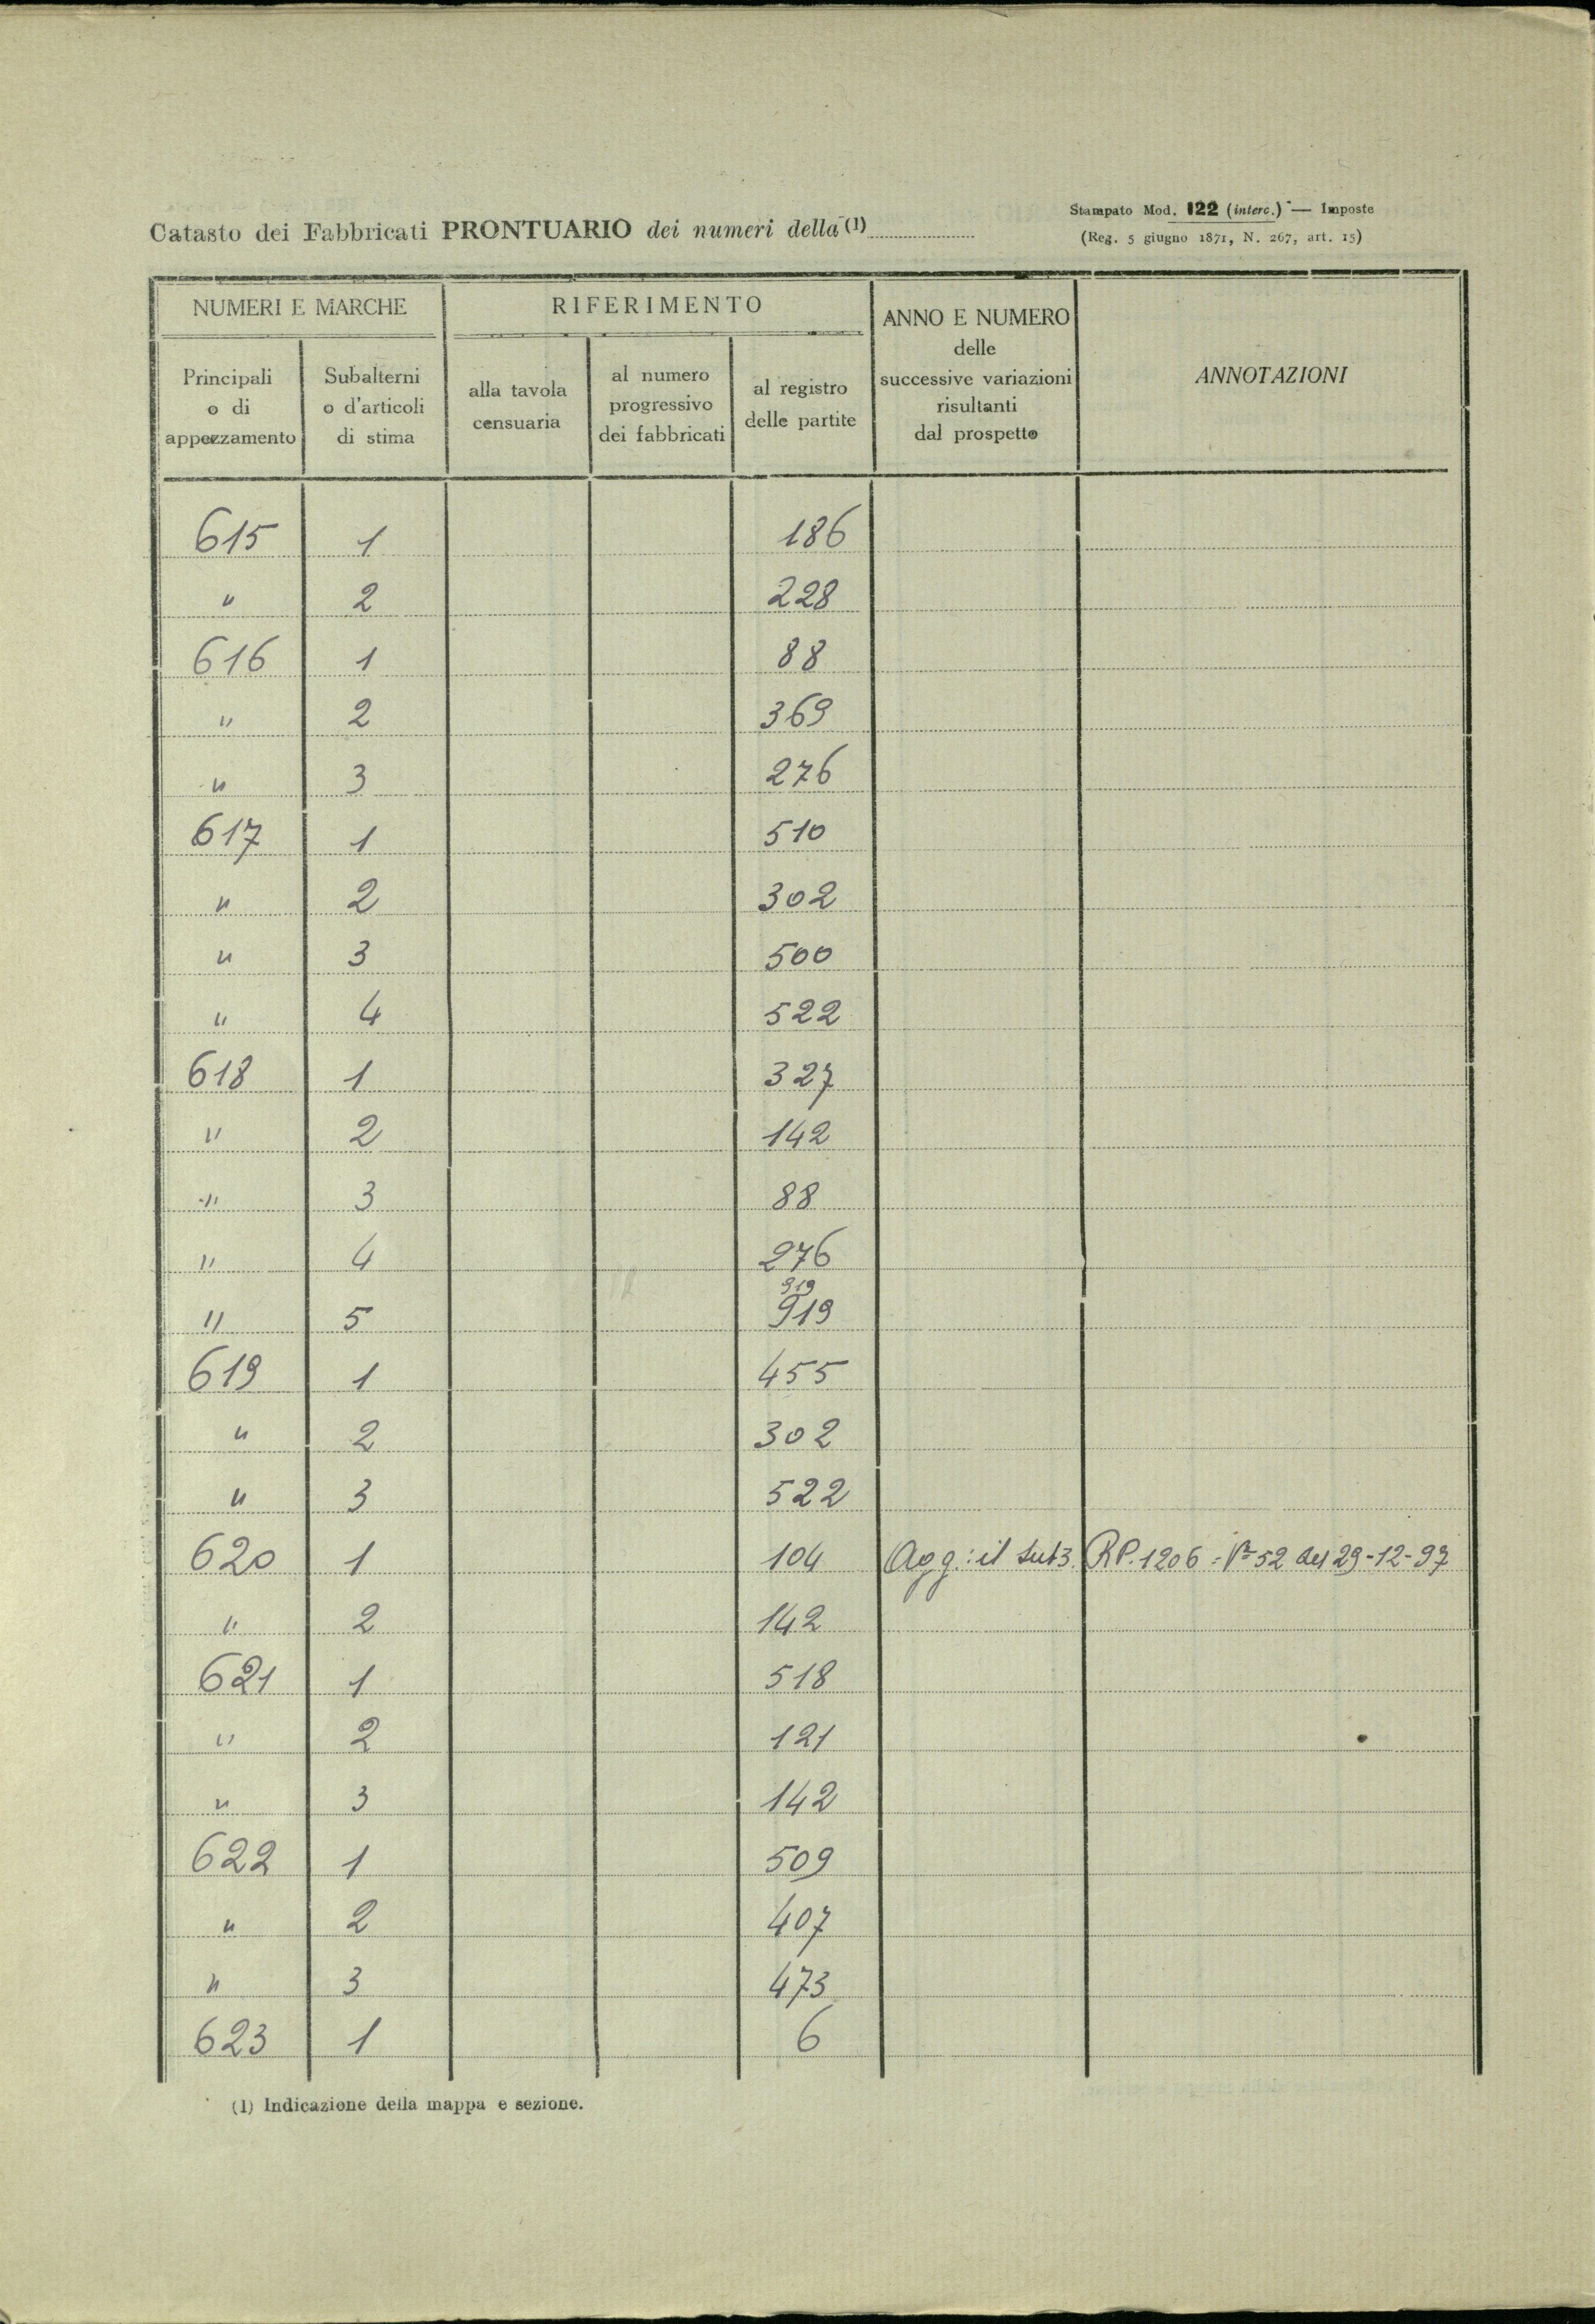 Catasto dei Fabbricati PRONTUARIO dei numeri della (1)
Stampato Mod. 122 (interc.) — Imposte
(Reg. 5 giugno 1871, N. 267, art. 15)
NUMERI E MARCHE
RIFERIMENTO
ANNO E NUMERO
delle
successive variazioni
risultanti
dal prospetto
ANNOTAZIONI
Principali
o di
appezzamento
Subalterni
o d'articoli
di stima
alla tavola
censuaria
al numero
progressivo
dei fabbricati
al registro
delle partite
615 1 186
" 2 228
616 1 88
" 2 369
" 3 276
617 1 510
" 2 302
" 3 500
" 4 522
618 1 327
" 2 142
" 3 88
" 4 276
919
" 5 919
619 1 455
" 2 302
" 3 522
620 1 104 Agg.: il sub 3. RP. 1206 = 52 del 29-12-97
" 2 142
621 1 518
" 2 121
" 3 142
622 1 509
" 2 407
" 3 473
623 1 6
(1) Indicazione della mappa e sezione.